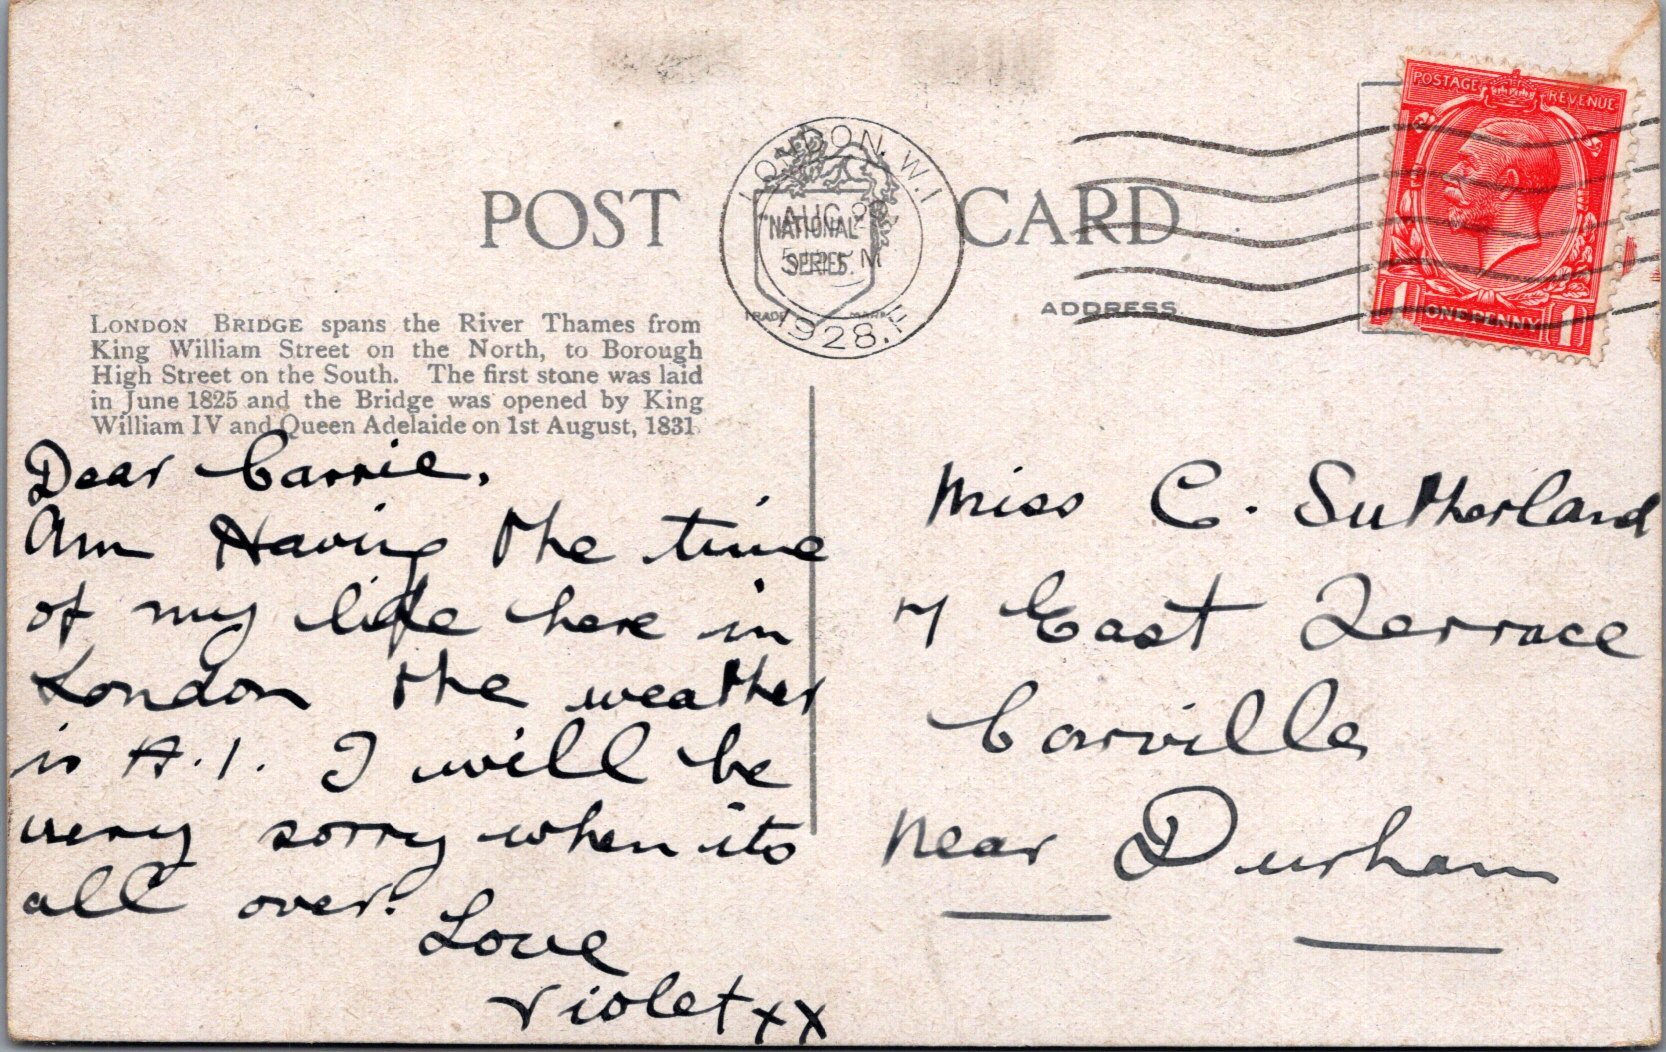 POST CARD
LONDON. W.1
AUG
1928. F
"NATIONAL"
SERIES.
TRADE MARK
POSTAGE REVENUE
1 ONE PENNY 1
ADDRESS
LONDON BRIDGE spans the River Thames from
King William Street on the North, to Borough
High Street on the South. The first stone was laid
in June 1825 and the Bridge was opened by King
William IV and Queen Adelaide on 1st August, 1831.
Dear Carrie.
Am Having the time
of my life here in
London the weather
is A.1. I will be
very sorry when its
all over.
Love
Violet xx
Miss C. Sutherland
7 East Terrace
Carville
near Durham